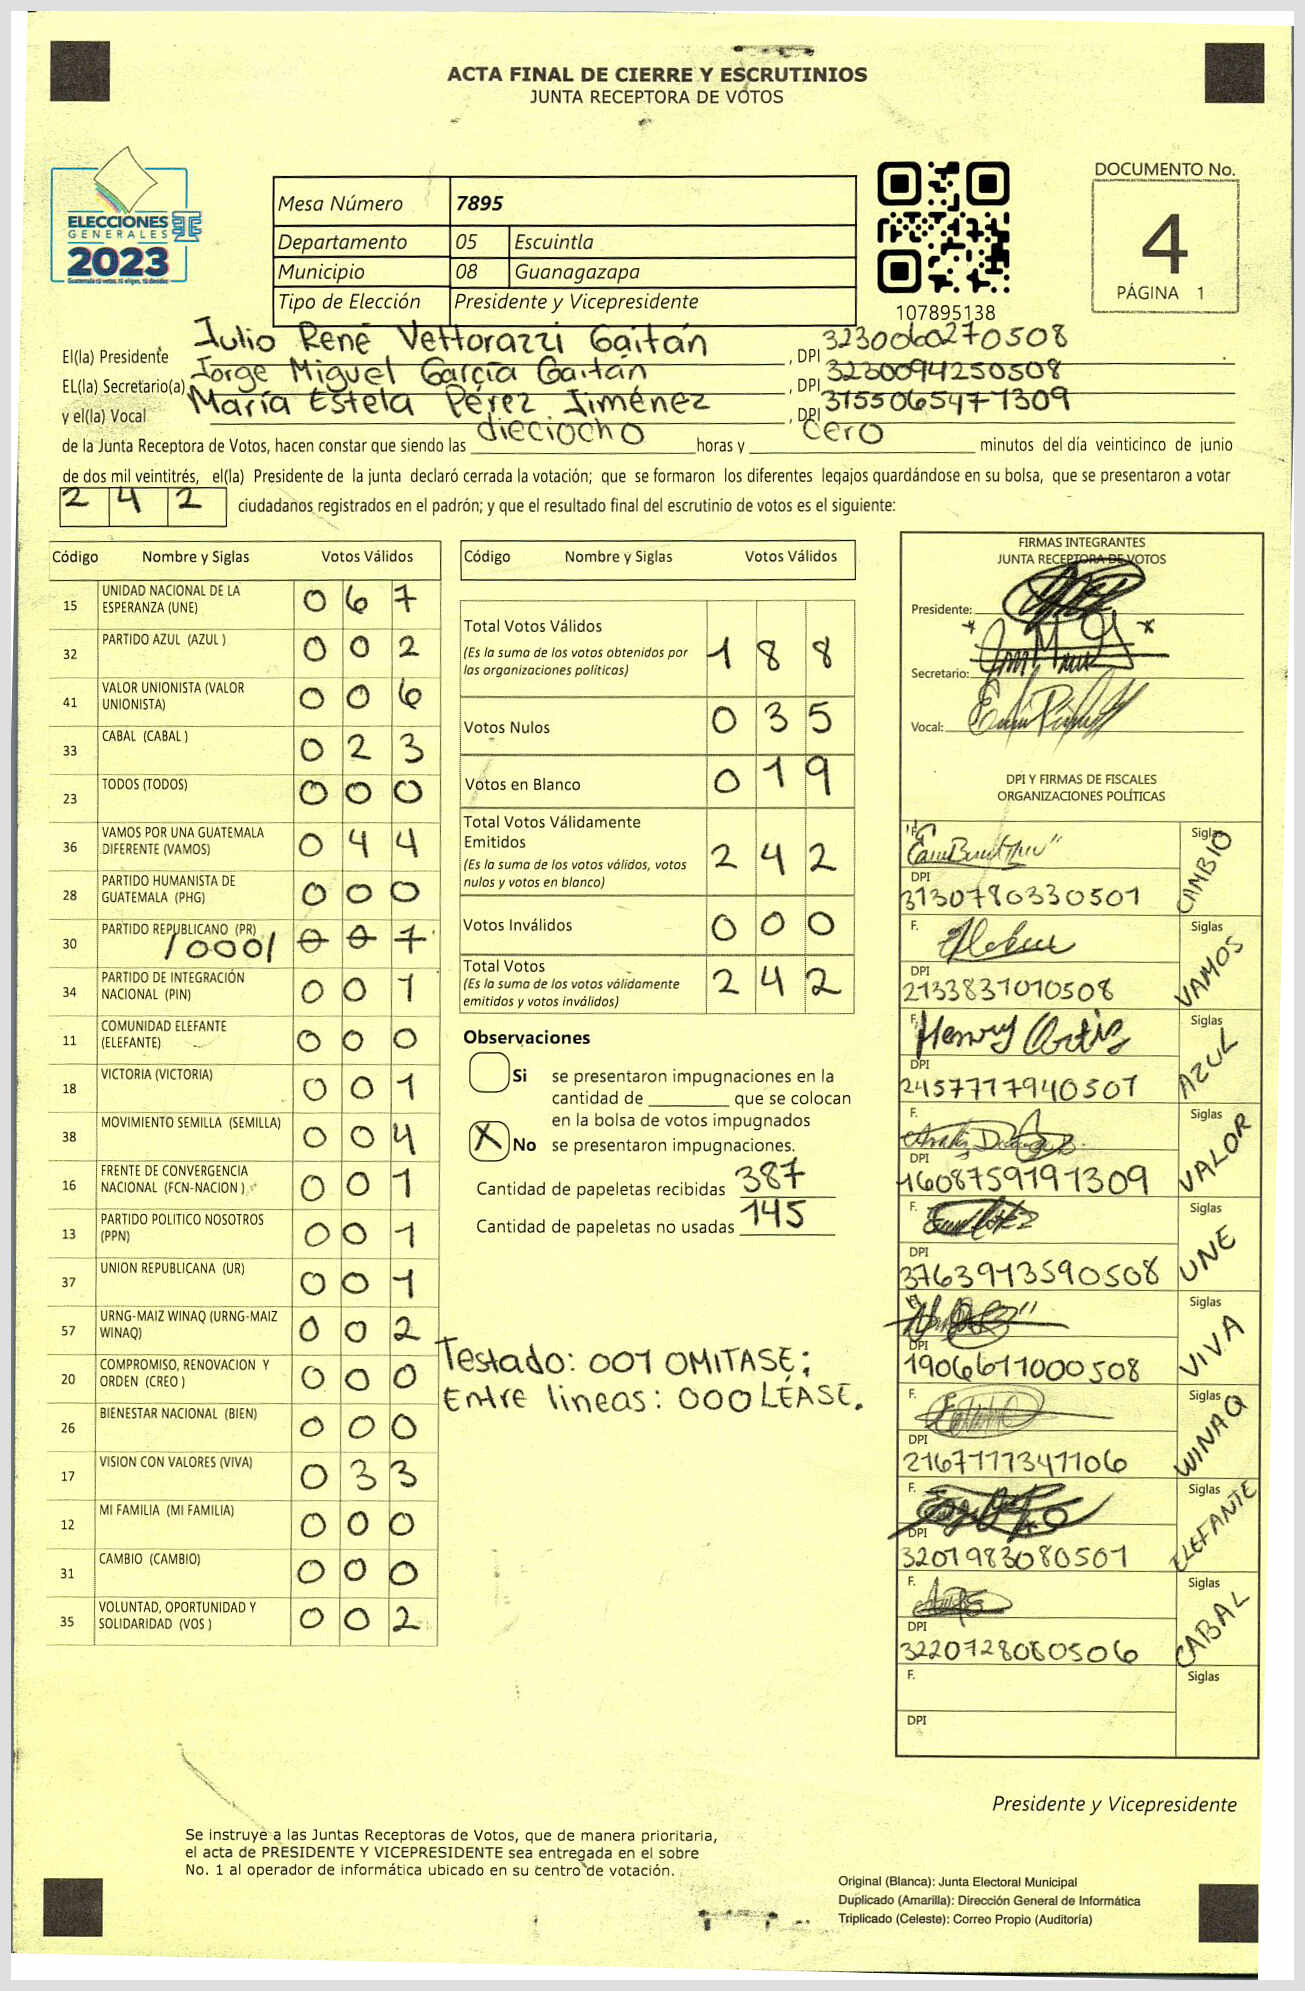 ACTA FINAL DE CIERRE Y ESCRUTINIOS
JUNTA RECEPTORA DE VOTOS
ELECCIONES
GENERALES
2023
Mesa Número 7895
Departamento 05 Escuintla
Municipio 08 Guanagazapa
Tipo de Elección Presidente y Vicepresidente
107895138
DOCUMENTO No.
4
PÁGINA 1
El(la) Presidente Julio René Vettorazzi Gaitán, DPI 3230060270508
EL(la) Secretario(a) Jorge Miguel García Gaitán, DPI 3230094250508
y el(la) Vocal María Estela Pérez Jiménez, DPI 3155065471309
de la Junta Receptora de Votos, hacen constar que siendo las dieciocho horas y cero minutos del día veinticinco de junio
de dos mil veintitrés, el(la) Presidente de la junta declaró cerrada la votación; que se formaron los diferentes legajos guardándose en su bolsa, que se presentaron a votar
242 ciudadanos registrados en el padrón; y que el resultado final del escrutinio de votos es el siguiente:
Código Nombre y Siglas Votos Válidos
15 UNIDAD NACIONAL DE LA ESPERANZA (UNE) 067
32 PARTIDO AZUL (AZUL ) 002
41 VALOR UNIONISTA (VALOR UNIONISTA) 006
33 CABAL (CABAL ) 023
23 TODOS (TODOS) 000
36 VAMOS POR UNA GUATEMALA DIFERENTE (VAMOS) 044
28 PARTIDO HUMANISTA DE GUATEMALA (PHG) 000
30 PARTIDO REPUBLICANO (PR) /000/ 001
34 PARTIDO DE INTEGRACIÓN NACIONAL (PIN) 001
11 COMUNIDAD ELEFANTE (ELEFANTE) 000
18 VICTORIA (VICTORIA) 001
38 MOVIMIENTO SEMILLA (SEMILLA) 004
16 FRENTE DE CONVERGENCIA NACIONAL (FCN-NACION ) 001
13 PARTIDO POLITICO NOSOTROS (PPN) 001
37 UNION REPUBLICANA (UR) 001
57 URNG-MAIZ WINAQ (URNG-MAIZ WINAQ) 002
20 COMPROMISO, RENOVACION Y ORDEN (CREO ) 000
26 BIENESTAR NACIONAL (BIEN) 000
17 VISION CON VALORES (VIVA) 033
12 MI FAMILIA (MI FAMILIA) 000
31 CAMBIO (CAMBIO) 000
35 VOLUNTAD, OPORTUNIDAD Y SOLIDARIDAD (VOS ) 002
Código Nombre y Siglas Votos Válidos
Total Votos Válidos 188
(Es la suma de los votos obtenidos por
las organizaciones políticas)
Votos Nulos 035
Votos en Blanco 019
Total Votos Válidamente
Emitidos 242
(Es la suma de los votos válidos, votos
nulos y votos en blanco)
Votos Inválidos 000
Total Votos 242
(Es la suma de los votos válidamente
emitidos y votos inválidos)
Observaciones
Si se presentaron impugnaciones en la
cantidad de ________ que se colocan
en la bolsa de votos impugnados
X No se presentaron impugnaciones.
Cantidad de papeletas recibidas 387
Cantidad de papeletas no usadas 145
Testado: 001 OMITASE;
Entre lineas: 000 LÉASE.
FIRMAS INTEGRANTES
JUNTA RECEPTORA DE VOTOS
Presidente:
Secretario:
Vocal:
DPI Y FIRMAS DE FISCALES
ORGANIZACIONES POLÍTICAS
F. Siglas CAMBIO
DPI 3130780330501
F. Siglas VAMOS
DPI 2133831010508
F. Henry Ortiz Siglas AZUL
DPI 2457777940501
F. Siglas VALOR
DPI 1608759191309
F. Siglas UNE
DPI 3763913590508
Siglas VIVA
DPI 1906611000508
F. Siglas WINAQ
DPI 2167111341106
F. Siglas ELEFANTE
DPI 3201983080501
F. Siglas CABAL
DPI 3220728080506
F. Siglas
DPI
Presidente y Vicepresidente
Se instruye a las Juntas Receptoras de Votos, que de manera prioritaria,
el acta de PRESIDENTE Y VICEPRESIDENTE sea entregada en el sobre
No. 1 al operador de informática ubicado en su centro de votación.
Original (Blanca): Junta Electoral Municipal
Duplicado (Amarilla): Dirección General de Informática
Triplicado (Celeste): Correo Propio (Auditoría)